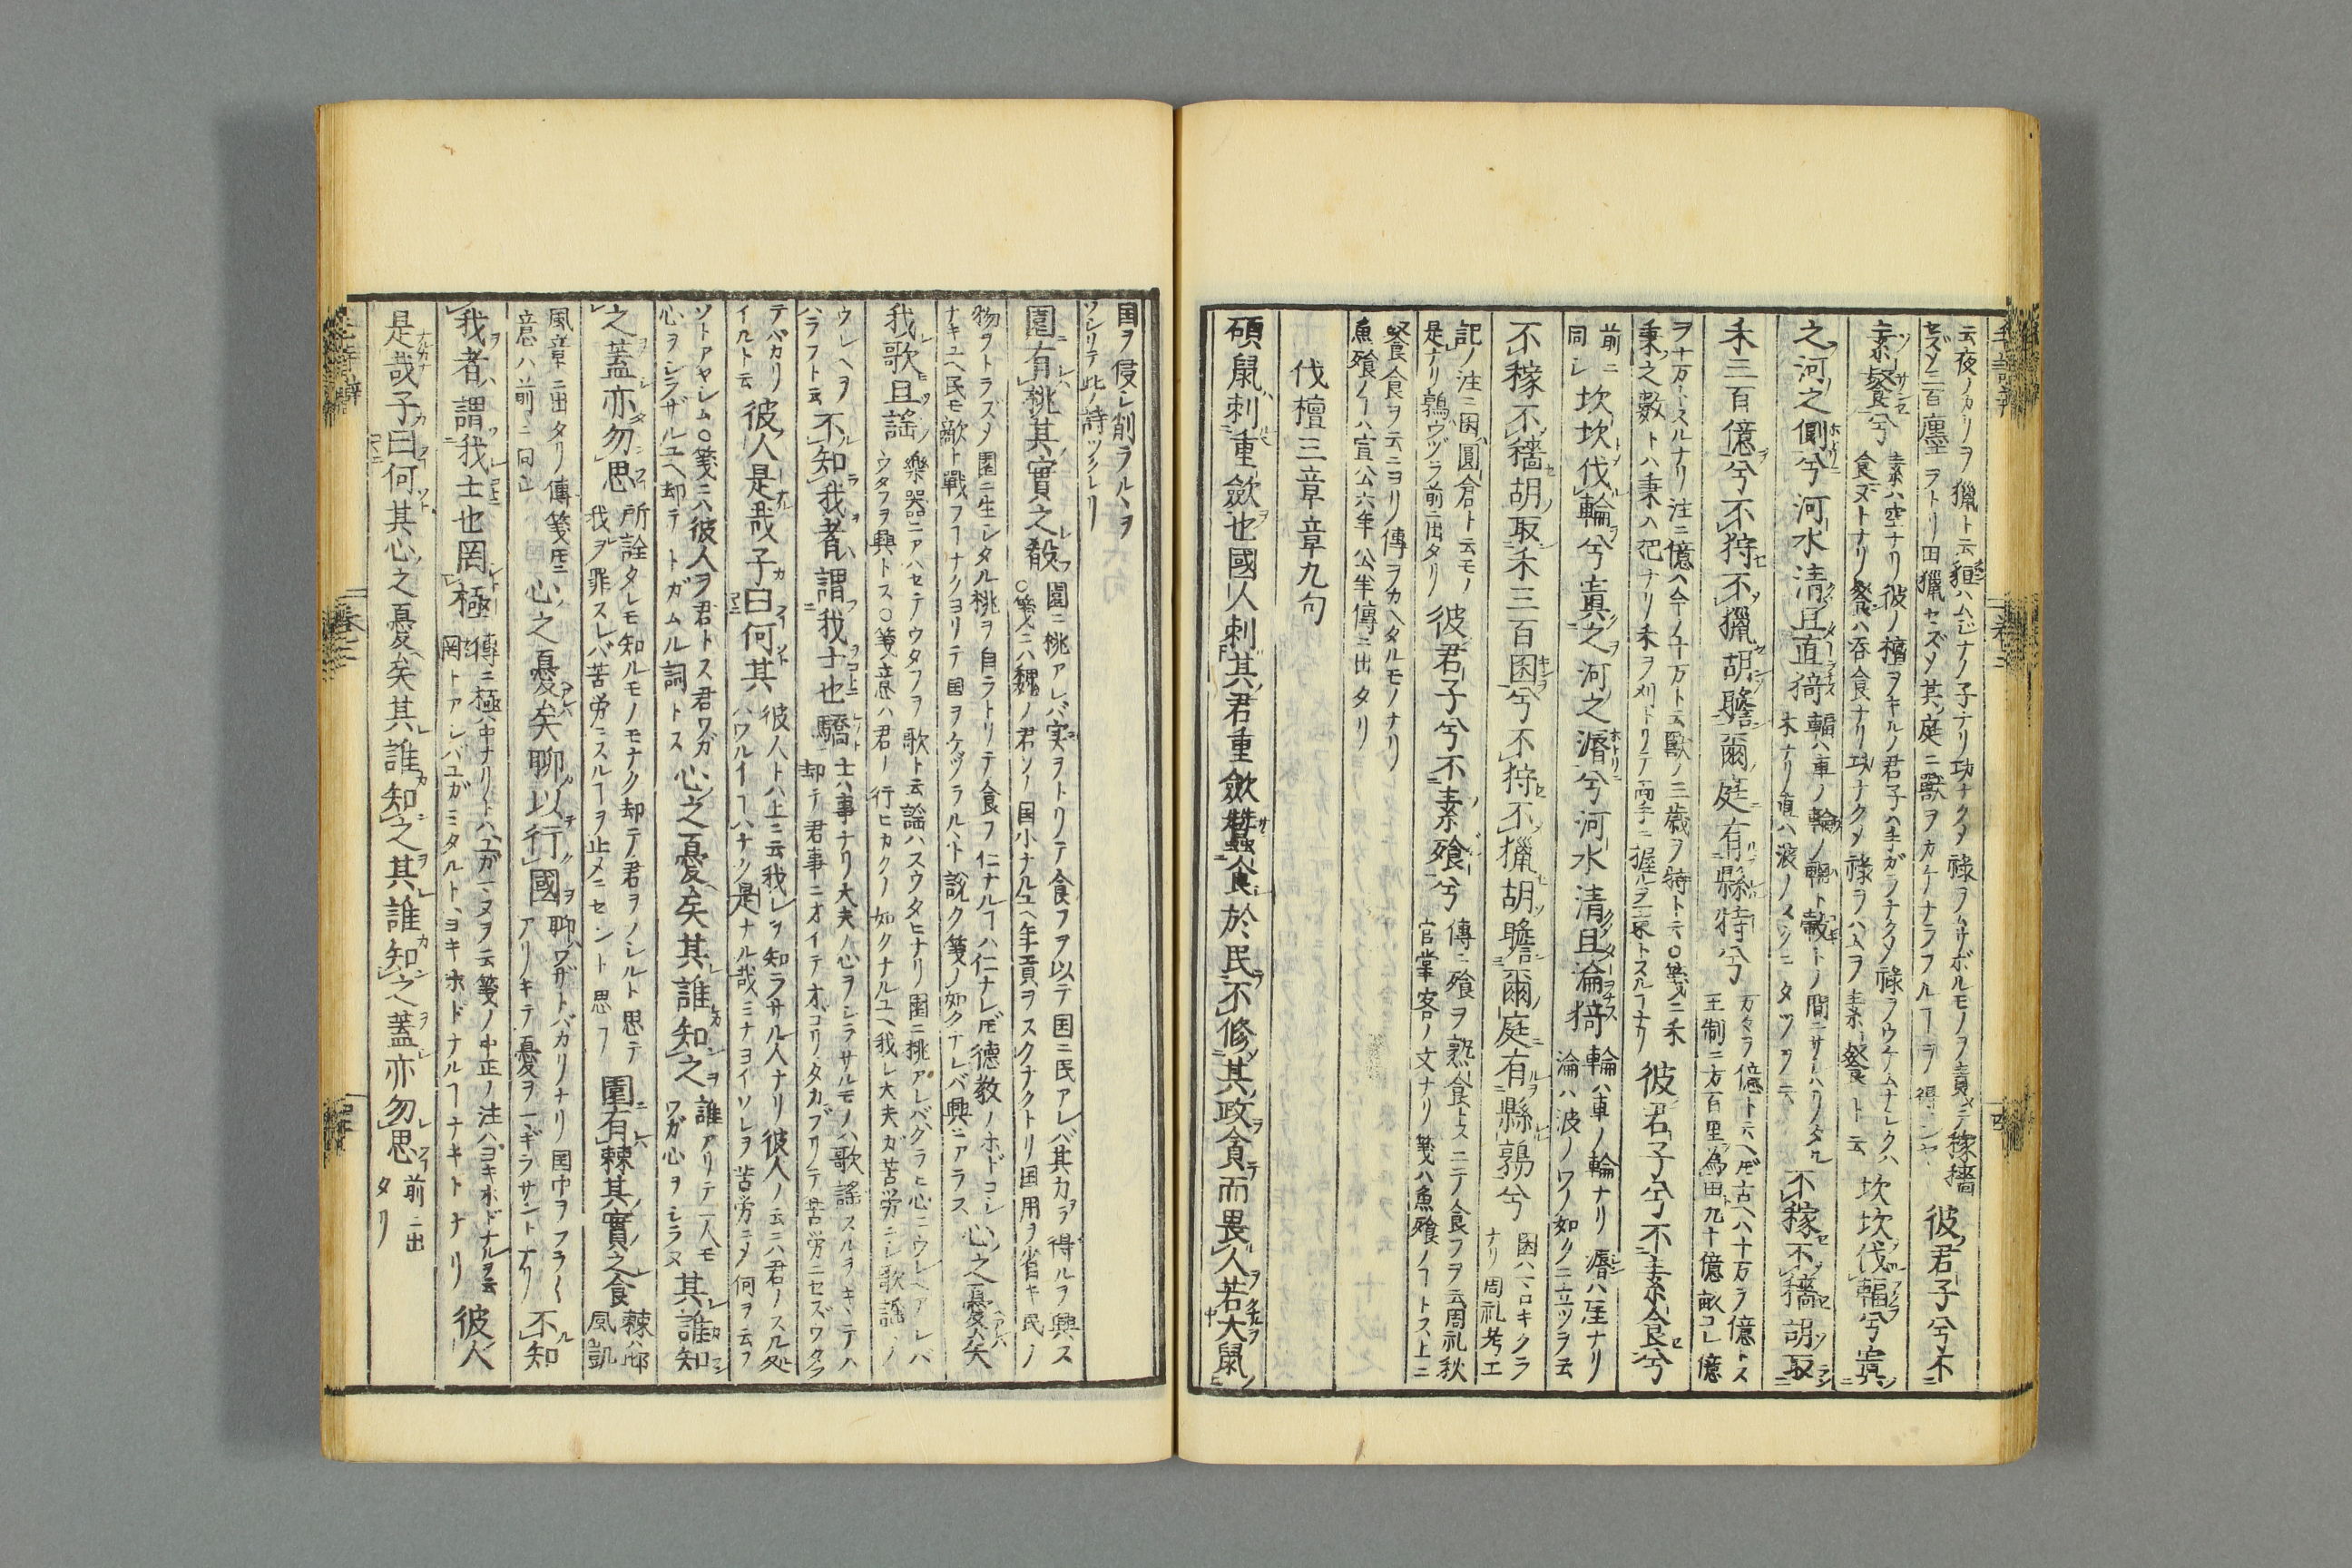 云夜ノカリヲ獵ト云貆ハムジナノ子ナリ功ナクメ禄ヲムサボルモノヲ責メテ稼穡
セズメ三百廛ヲトリ田獵セズメ其庭ニ獸ヲカケナラフルヿヲ得ンヤ
彼君子兮不
素餐兮
素ハ空ナリ彼ノ檀ヲキルノ君子ハ手ガラナクメ禄ヲウケムナシクハ
食ヌトナリ餐ハ吞食ナリ功ナクメ禄ヲハムヲ素餐ト云
坎坎伐輻兮寘
之河之側兮河水清且直猗
輻ハ車ノ輪ノ
木ナリ直ハ波ノ
不稼不穡胡取
禾三百億兮不狩不獵胡瞻爾庭有縣特兮
万々ヲ億ト云ヘ𪜈古ハ十万ヲ億トス
王制ニ方百里為田九十億畝コレ億
ヲ十万トスルナリ注ニ億ハ今ノ十万ト云獸ノ三歳ヲ特ト云〇箋ニ禾
秉之數トハ秉ハ把ナリ禾ヲ刈トリテ両手ニ握ルヲ一秉トスルヿナリ
彼君子兮不素食兮
前ニ
同シ
坎坎伐輪兮寘之河之漘兮河水清且淪猗
輪ハ車ノ輪ナリ漘ハ厓ナリ
淪ハ波ノワノ如クニ立ツヲ云
不稼不穡胡取禾三百囷兮不狩不獵胡瞻爾庭有縣鶉兮
囷ハマロキクラ
ナリ周礼考工
記ノ注ニ囷ハ圓倉ト云モノ
是ナリ鶉ハウヅラ前ニ出タリ
彼君子兮不素飱兮
傳ニ飱ヲ熟食トスニテノ食フヲ云周礼秋
官掌客ノ文ナリ箋ハ魚飱ノヿトス上ニ
餐食ヲ云ニヨリ傳ヲカヘタルモノナリ
魚飱ノヿハ宣公六年公羊傳ニ出タリ
伐檀三章章九句
碩鼠刺重斂也國人刺其君重斂蠶食於民不修其政貪而畏人若大鼠
国ヲ侵シ削ラルヽヲ
ソシリテ此ノ詩ツクレリ
園有桃其實之殽
園ニ桃アレバ実ヲトリテ食フヲ以テ国ニ民アレバ其力ヲ得ルヲ興ス
〇箋ニハ魏ノ君ソノ国小ナルユヘ年貢ヲスクナクトリ国用ヲ省キ民ノ
物ヲトラズメ園ニ生シタル桃ヲ自ラトリテ食フ仁ナルヿハ仁ナレ𪜈德教ノホドコシ
ナキユヘ民モ敵ト戰フヿナクヨリテ国ヲケヅラルヽト説ク箋ノ如クナレバ興ニアラス
心之憂矣
我歌且謠
樂器ニアハセテウタフヲ歌ト云謠ハスウタヒナリ園ニ桃アレバクラヒ心ニウレヘアレバ
ウタフヲ興トス〇箋ノ意ハ君ノ行ヒカクノ如クナルユヘ我レ大夫ガ苦労ニシ歌謠シノ
ウレヘヲ
ハラフト云
不知我者謂我士也驕
士ハ事ナリ大夫ノ心ヲシラサルモノハ歌謠スルヲキヽテハ
却テ君事ニオイテオゴリタカブリテ苦労ニセズウタフ
テバカリ
イルト云
彼人是哉子曰何其
彼人トハ上ニ云我レヲ知ラサル人ナリ彼人ノ云ハ君ノスル処
ハワルイヿハナク是ナル哉ミナヨイソレヲ苦労ニメ何ヲ云フ
ソトアヤシム〇箋ニハ彼人ヲ君トス君ワガ
心ヲシラザルユヘ却テトガムル詞トス
心之憂矣其誰知之
誰アリテ一人モ
ワガ心ヲシラヌ
其誰知
之蓋亦勿思
所詮タレモ知ルモノモナク却テ君ヲソシルト思テ
我ヲ罪スレバ苦労ニスルヿヲ止メニセント思フ
園有棘其實之食
棘ハ邶
風凱
風章ニ出タリ傳箋𪜈ニ
意ハ前ニ同シ
心之憂矣聊以行國
聊ハワザトバカリノナリ国中ヲフラ〱
アリキテ憂ヲマギラサントナリ
不知
我者謂我士也罔極
傳ニ極ハ中ナリトハユガマヌヲ云箋ノ中正ノ注ハヨキホドナルヲ云
罔トアレバユガミタルトヽヨキホドナルヿナキトナリ
彼人
是哉子曰何其心之憂矣其誰知之其誰知之蓋亦勿思
前ニ出
タリ